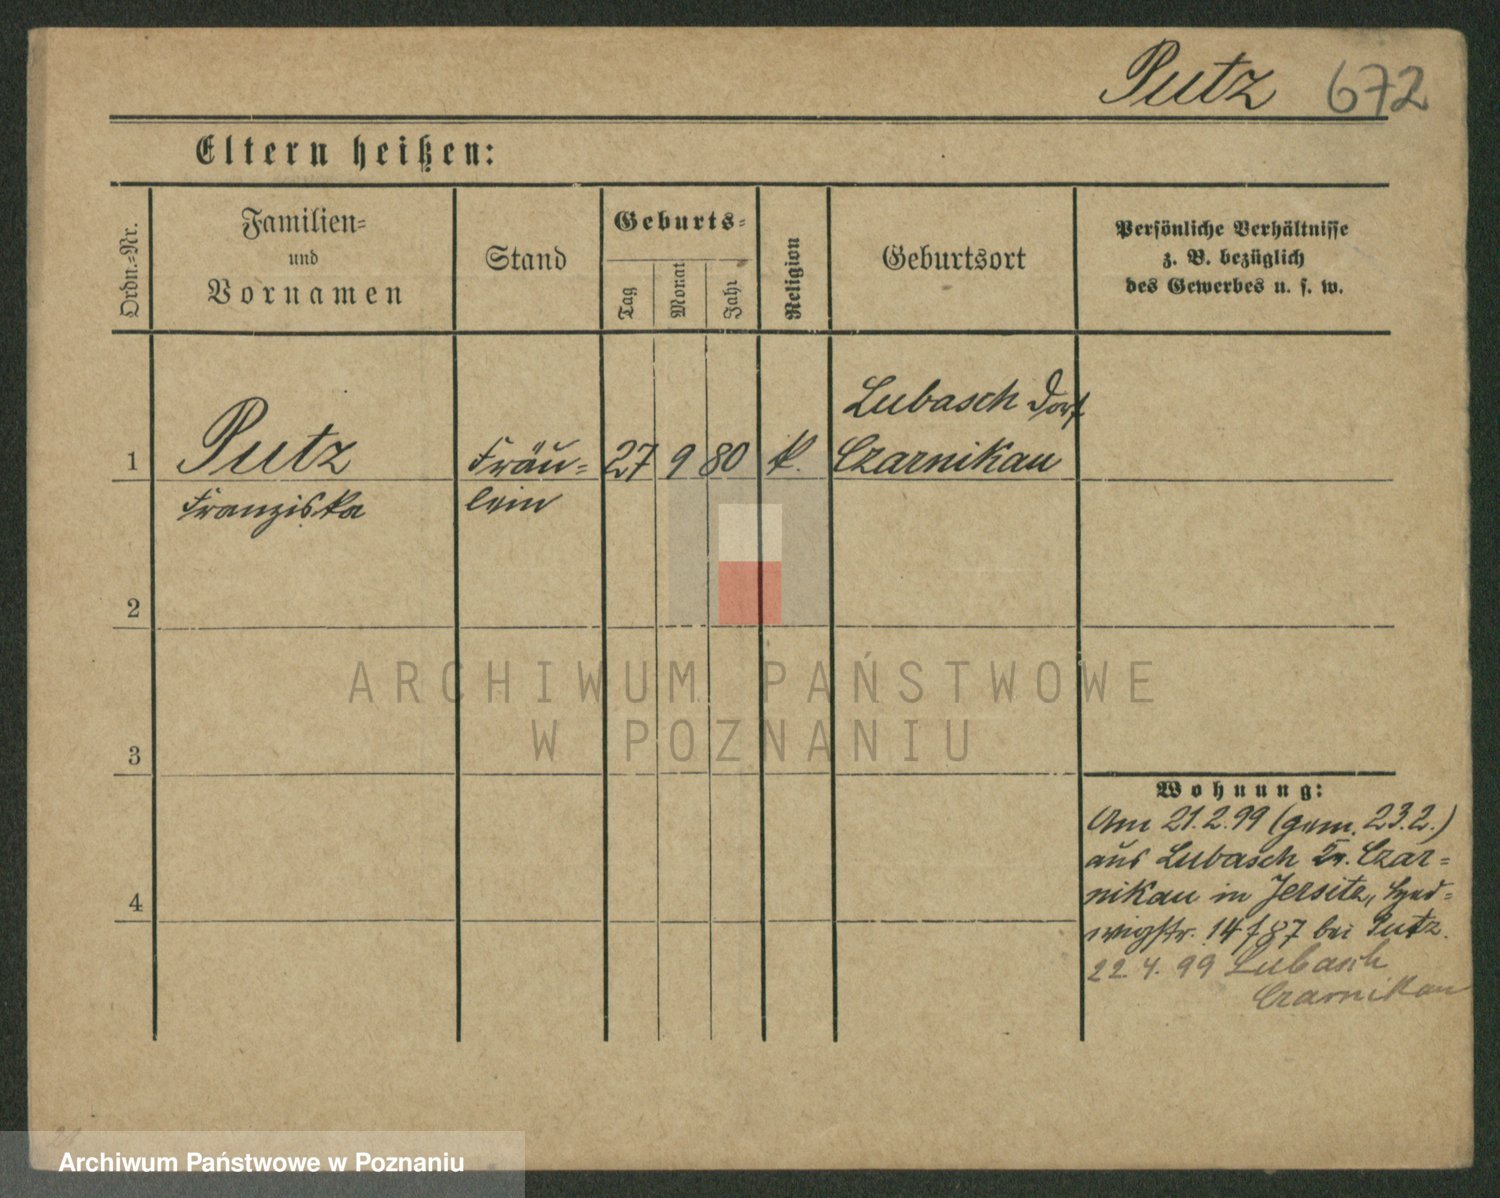 Putz 672
Eltern heißen:
Ordn.-Nr.
Familien-
und
Vornamen
Stand
Geburts-
Tag
Monat
Jahr
Religion
Geburtsort
Persönliche Verhältnisse
z. B. bezüglich
des Gewerbes u. s. w.
Lubasch Dorf
1 Putz Fräu- 27 9 80 k. Czarnikau
Franziska lein
2
ARCHIWUM PAŃSTWOWE
W POZNANIU
3
Wohnung:
Am 21.2.99 (gem. 23.2.)
aus Lubasch Kr. Czar-
nikau in Jersitz, Hed-
wigstr. 14 bei Putz.
22 4. 99 Lubasch
Czarnikau
4
Archiwum Państwowe w Poznaniu